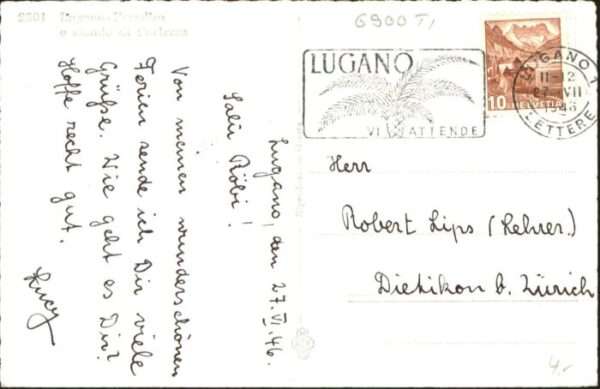 2201 Lugano-Paradiso
e sfondo di Porlezza
6900 T,
LUGANO
VI ATTENDE
10 HELVETIA
LUGANO 1
11-12
27. VII
1946
LETTERE
Lugano, den 27. VI. 46.
Salü Röbi!
Von meinen wunderschönen
Ferien sende ich Dir viele
Grüße. Wie geht es Dir?
Hoffe recht gut.
Lucy
Herr
Robert Lips (Lehrer.)
Dietikon b. Zürich
4.-